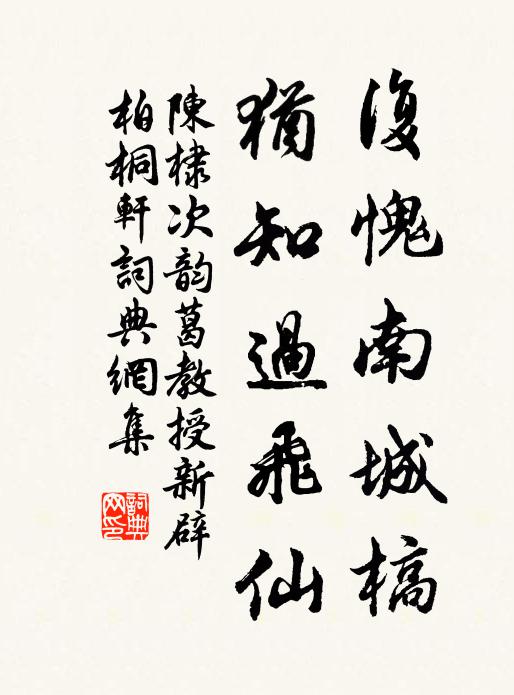 復愧南城槁
猶知過飛仙
陳棣次韵葛教授新辟
柏桐軒詞典網集
詞典
网印